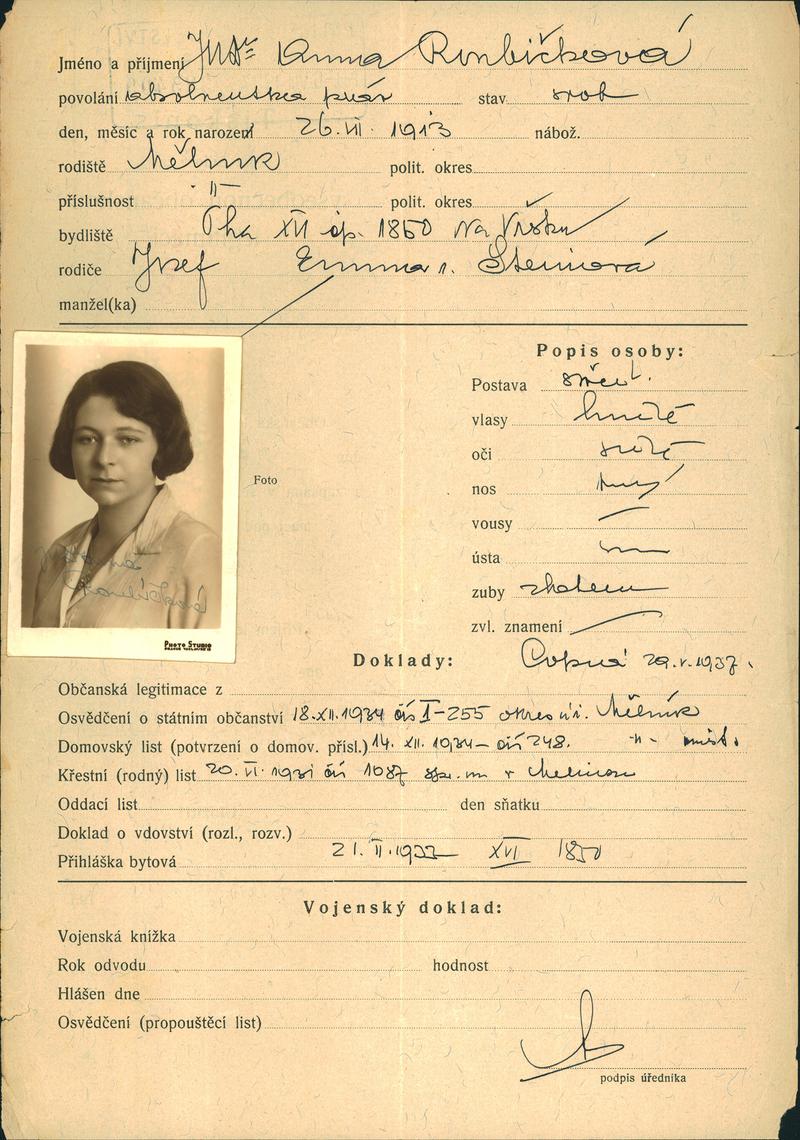 Jméno a příjmení JUDr Anna Roubíčková
povolání absolventka práv stav svob
den, měsíc a rok narození 26.VII. 1913 nábož.
rodiště Mělník polit. okres
příslušnost -"- polit. okres
bydliště Pha XII čp. 1850 Na Vršku
rodiče Josef Emma r. Steinová
manžel(ka)
Popis osoby:
Postava střed.
vlasy hnědé
oči
nos
vousy
ústa
zuby
zvl. znamení
Foto
PHOTO STUDIO
Doklady:
29.V.1937.
Občanská legitimace z
Osvědčení o státním občanství 18.XII.1934 čís I-255 okres. úř. Mělník
Domovský list (potvrzení o domov. přísl.) 14. XII. 1934 čís 248. -"-
Křestní (rodný) list 20. VI. 1931 čís 1087
Oddací list den sňatku
Doklad o vdovství (rozl., rozv.)
Přihláška bytová 21.II. XVI 1850
Vojenský doklad:
Vojenská knížka
Rok odvodu hodnost
Hlášen dne
Osvědčení (propouštěcí list)
podpis úředníka